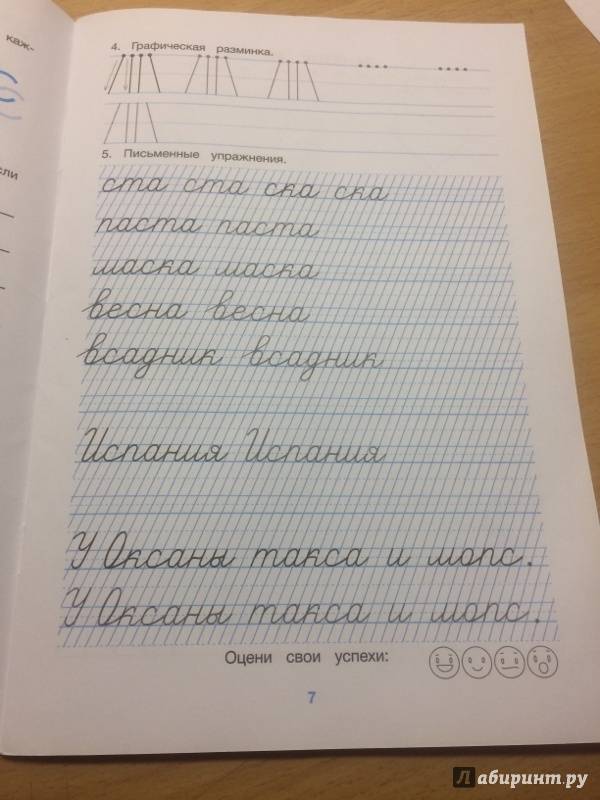 каж-
сли
4. Графическая разминка.
5. Письменные упражнения.
ста ста ска ска
паста паста
маска маска
весна весна
всадник всадник
Испания Испания
У Оксаны такса и мопс.
У Оксаны такса и мопс.
Оцени свои успехи:
7
Лабиринт.ру